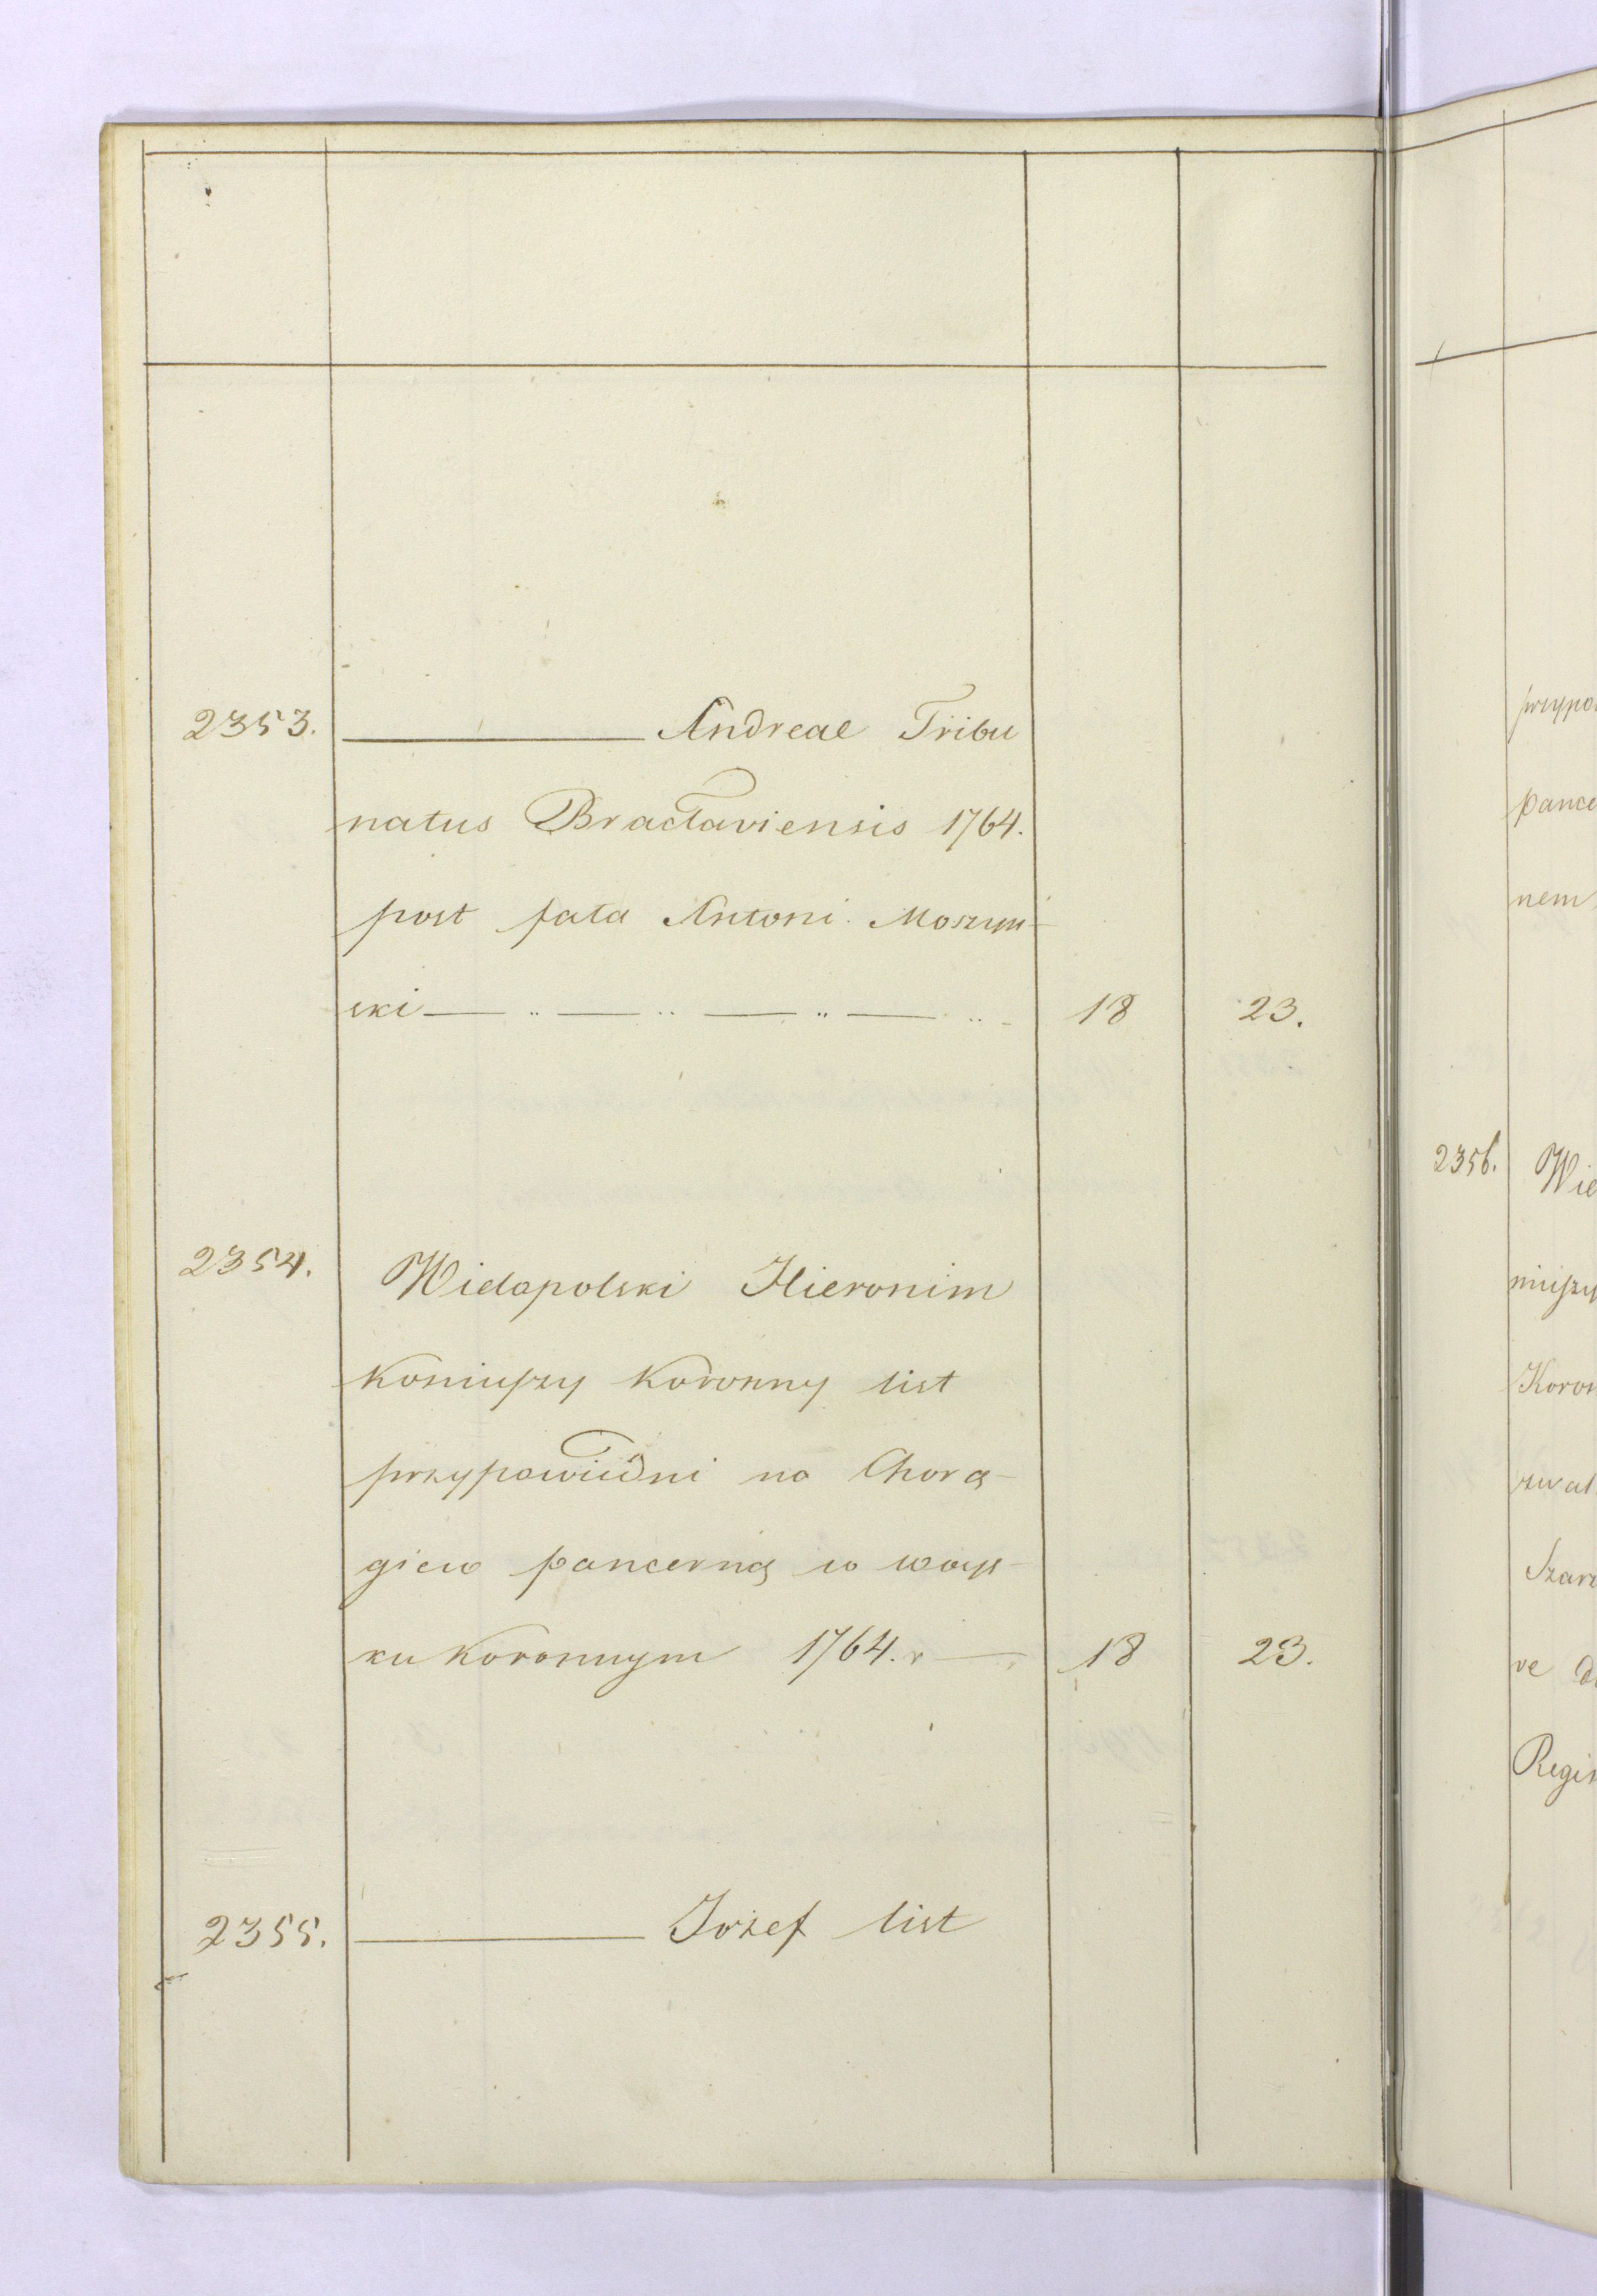 2353. ——— Andreae Tribu
natus Bractaviensis 1764.
post fata Antoni Moszyń-
ski — „ — „ — „ — „ - 18 23.
2354. Wielopolski Hieronim
Koniuszy Koronny list
przypowiedni na Chorą-
giew pancerną w woys-
ku Koronnym 1764. r — 18 23.
2355. ——— Jozef list
przypo
pance
nem
2356. Wie
niuszy
Koron
Szar
ve
Regi